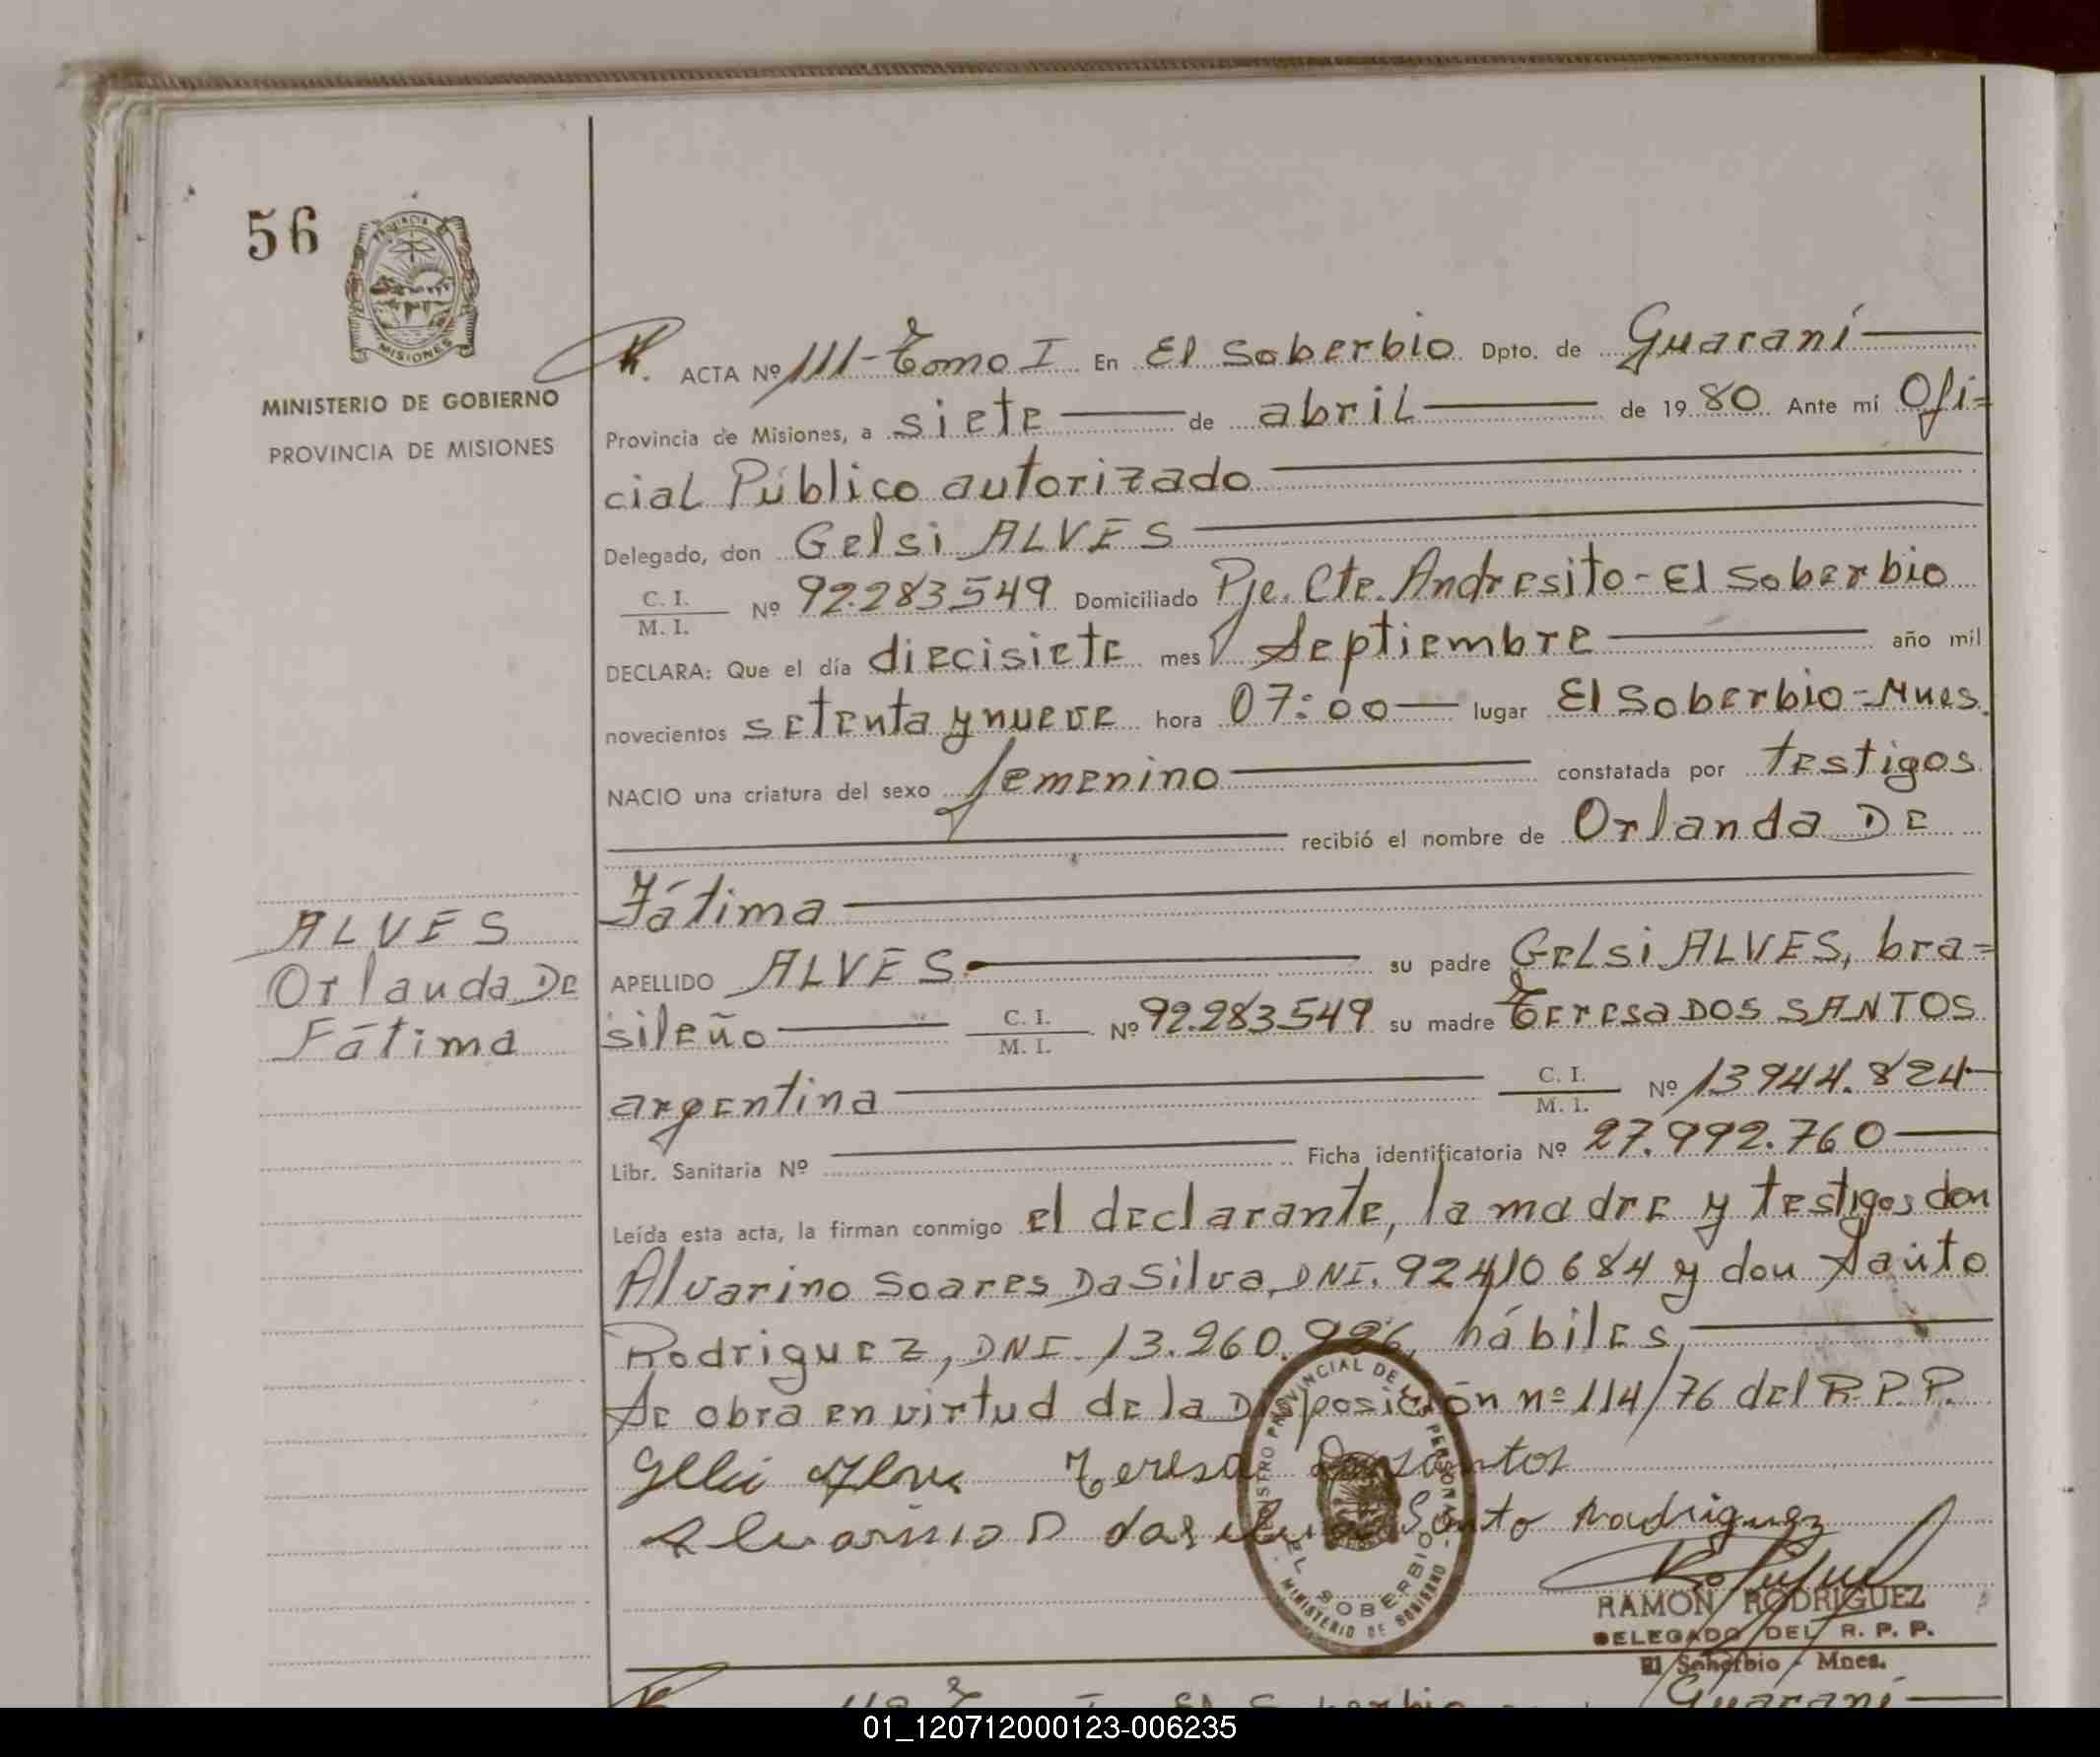 56
PROVINCIA
MISIONES
MINISTERIO DE GOBIERNO
PROVINCIA DE MISIONES
ACTA Nº 111-Tomo I En El Soberbio Dpto. de Guaraní
Provincia de Misiones, a siete de abril de 1980 Ante mí Ofi=
cial Público autorizado
Delegado, don Gelsi ALVES
C. I.
M. I. Nº 92.283549 Domiciliado Pje. Cte. Andresito-El Soberbio
DECLARA: Que el día diecisiete mes Septiembre año mil
novecientos setenta y nueve hora 07:00 lugar El Soberbio-Mnes.
NACIO una criatura del sexo femenino constatada por testigos
recibió el nombre de Orlanda De
Fátima
ALVES
Orlanda De
Fátima
APELLIDO ALVES. su padre Gelsi ALVES, bra=
sileño C. I. M. I. Nº 92.283549 su madre Teresa DOS SANTOS
argentina C. I. M. I. Nº 13944.824
Libr. Sanitaria Nº Ficha identificatoria Nº 27.992.760
Leída esta acta, la firman conmigo el declarante, la madre y testigos don
Alvarino Soares Da Silva, DNI. 92410684 y don Santo
Rodriguez, DNI. 13.260. hábiles,
Se obra en virtud de la Disposición nº 114/76 del R.P.P.
Teresa Dos santos
Santo Rodriguez
REGISTRO PROVINCIAL DE LAS PERSONAS
EL SOBERBIO
MINISTERIO DE GOBIERNO
RAMON RODRIGUEZ
DELEGADO DEL R. P. P.
El Soberbio - Mnes.
El Soberbio Guaraní
01_120712000123-006235